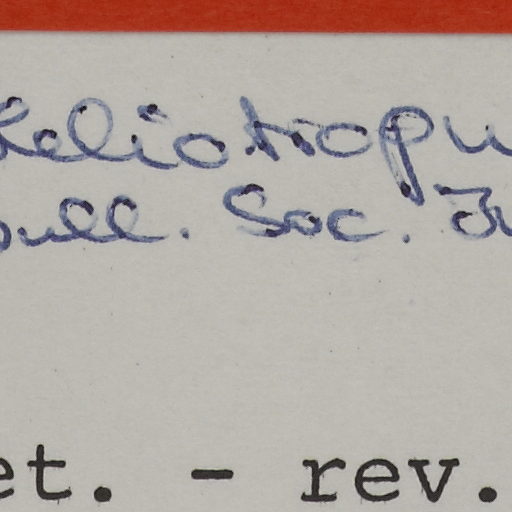 Heliotropiu
bull. Soc. Fr
et. - rev.